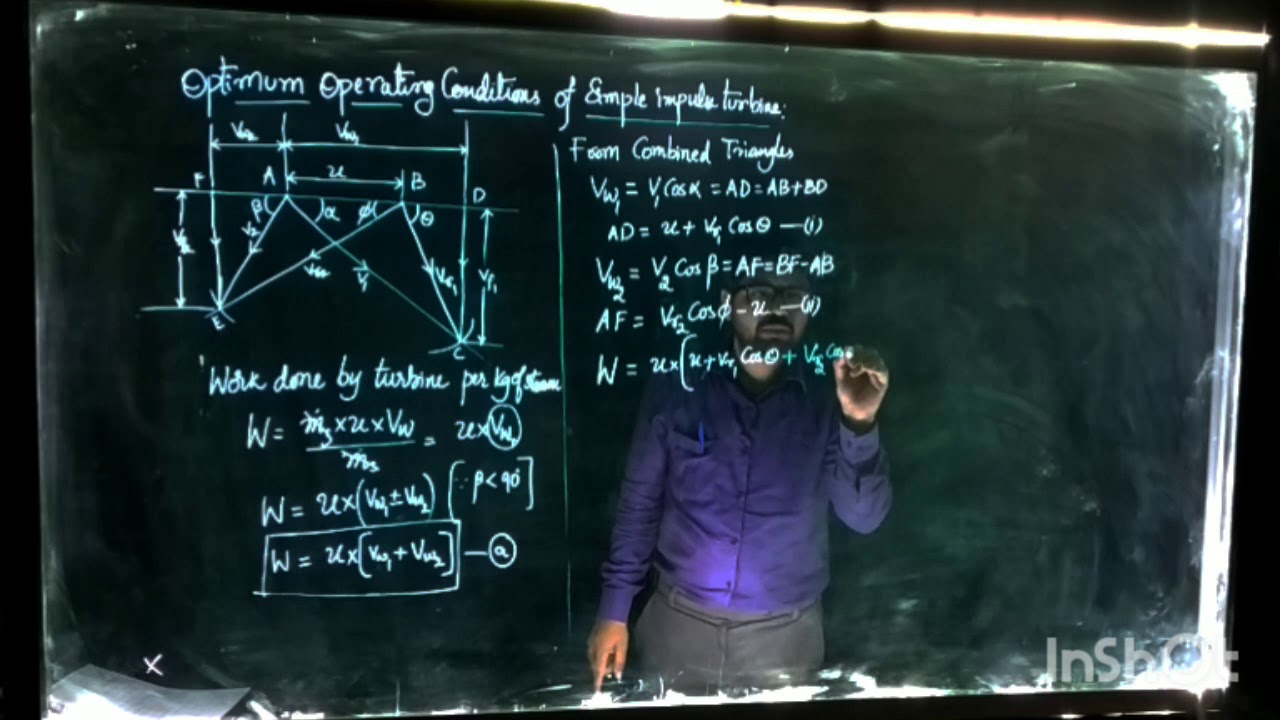 Optimum Operating Conditions of Simple impulse turbine.
Vw₂ Vw₁
F A u B D
β α φ θ
Vf₂ V₂ Vr₂ V₁ Vr₁ Vf₁
E C
Work done by turbine per kg of steam
W = ṁs × u × Vw / ṁs = u×
W = u×(Vw₁ ± Vw₂) [∵ β < 90°]
W = u×[Vw₁ + Vw₂] — (a)
From Combined Triangles
Vw₁ = V₁ Cos α = AD = AB + BD
AD = u + Vr₁ Cos θ — (i)
Vw₂ = V₂ Cos β = AF = BF - AB
AF = Vr₂ Cos φ - u — (ii)
W = u×(u + Vr₁ Cos θ + Vr₂ Cos
×
InShOt